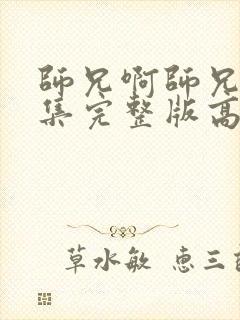 師兄啊師兄
集完整版高
草水敏 恵三